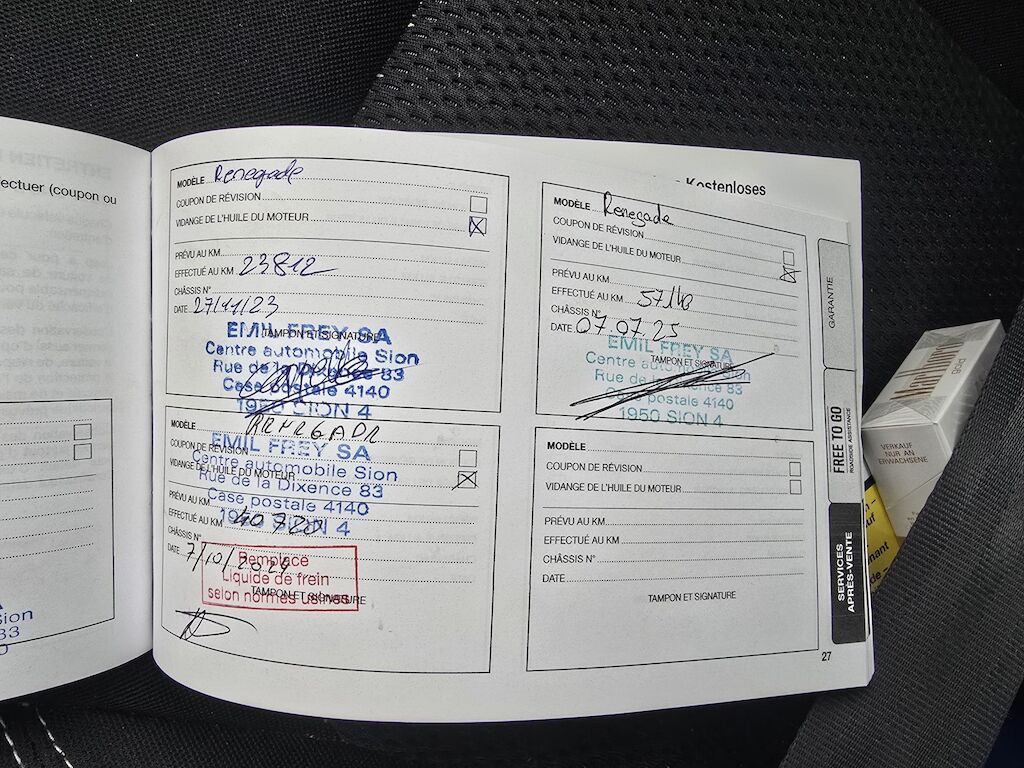 ectuer (coupon ou
sion
33
0
MODÈLE Renegade
COUPON DE RÉVISION
VIDANGE DE L'HUILE DU MOTEUR
PRÉVU AU KM
EFFECTUÉ AU KM 23812
CHÂSSIS N°
DATE 27/11/23
TAMPON ET SIGNATURE
EMIL FREY SA
Centre automobile Sion
Rue de la Dixence 83
Case postale 4140
1950 SION 4
MODÈLE
COUPON DE RÉVISION
VIDANGE DE L'HUILE DU MOTEUR
EMIL FREY SA
Centre automobile Sion
Rue de la Dixence 83
Case postale 4140
1950 SION 4
PRÉVU AU KM
EFFECTUÉ AU KM 40720
CHÂSSIS N°
DATE 7/10/2024
Remplacé
Liquide de frein
selon normes usines
TAMPON ET SIGNATURE
Kostenloses
MODÈLE Renegade
COUPON DE RÉVISION
VIDANGE DE L'HUILE DU MOTEUR
PRÉVU AU KM
EFFECTUÉ AU KM
CHÂSSIS N°
DATE 07.07.25
TAMPON ET SIGNATURE
EMIL FREY SA
Centre automobile Sion
Rue de la Dixence 83
Case postale 4140
1950 SION 4
MODÈLE
COUPON DE RÉVISION
VIDANGE DE L'HUILE DU MOTEUR
PRÉVU AU KM
EFFECTUÉ AU KM
CHÂSSIS N°
DATE
TAMPON ET SIGNATURE
27
GARANTIE
FREE TO GO
ROADSIDE ASSISTANCE
SERVICES
APRÈS-VENTE
Marlboro
VERKAUF
NUR AN
ERWACHSENE